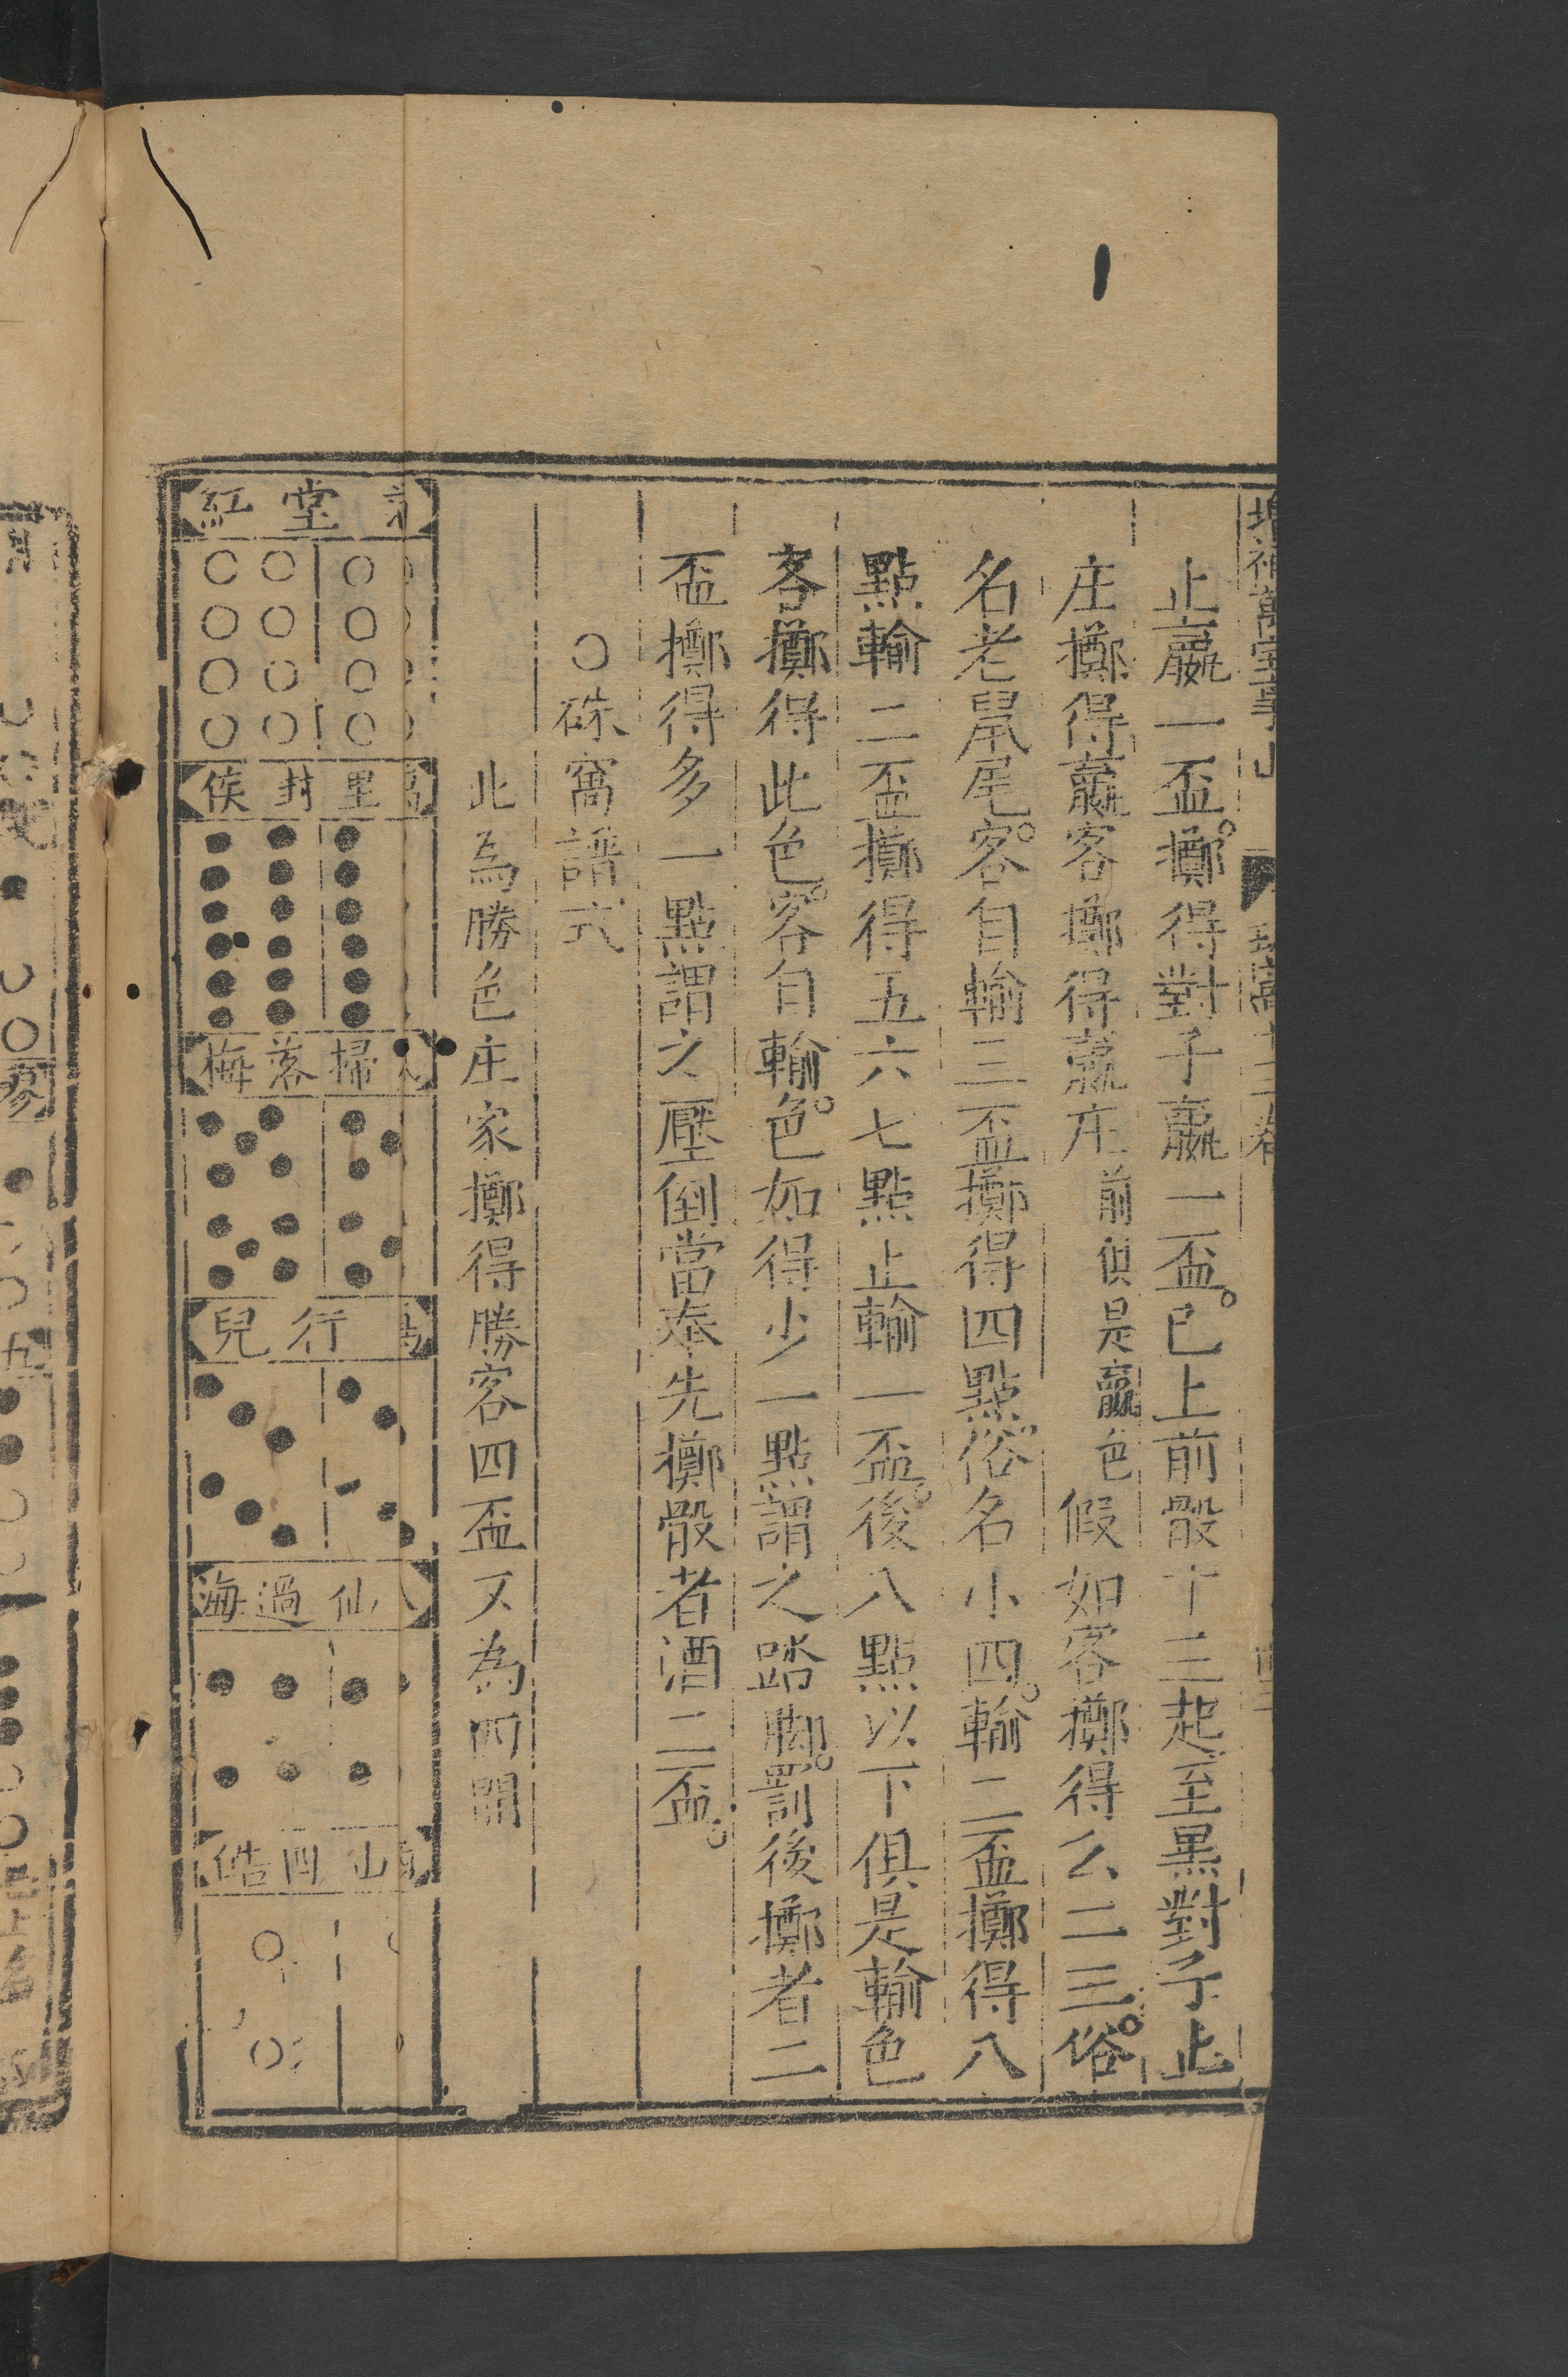 止贏一盃擲得對子贏一盃已上前骰十三起至黑對子止
庄擲得贏客擲得贏庄前俱是贏色假如客擲得么二三俗
名老鼠尾客自輸三盃擲得四點俗名小四輸二盃擲得八
點輸二盃擲得五六七點止輸一盃後八點以下俱是輸色
客擲得此色客自輸色如得少一點謂之踏脚罰後擲者二
盃擲得多一點謂之壓倒當奉先擲骰者酒二盃
○硃窩譜式
此為勝色庄家擲得勝客四盃又為四開
堂紅
里封侯
掃落梅
行兒
仙過海
山四皓